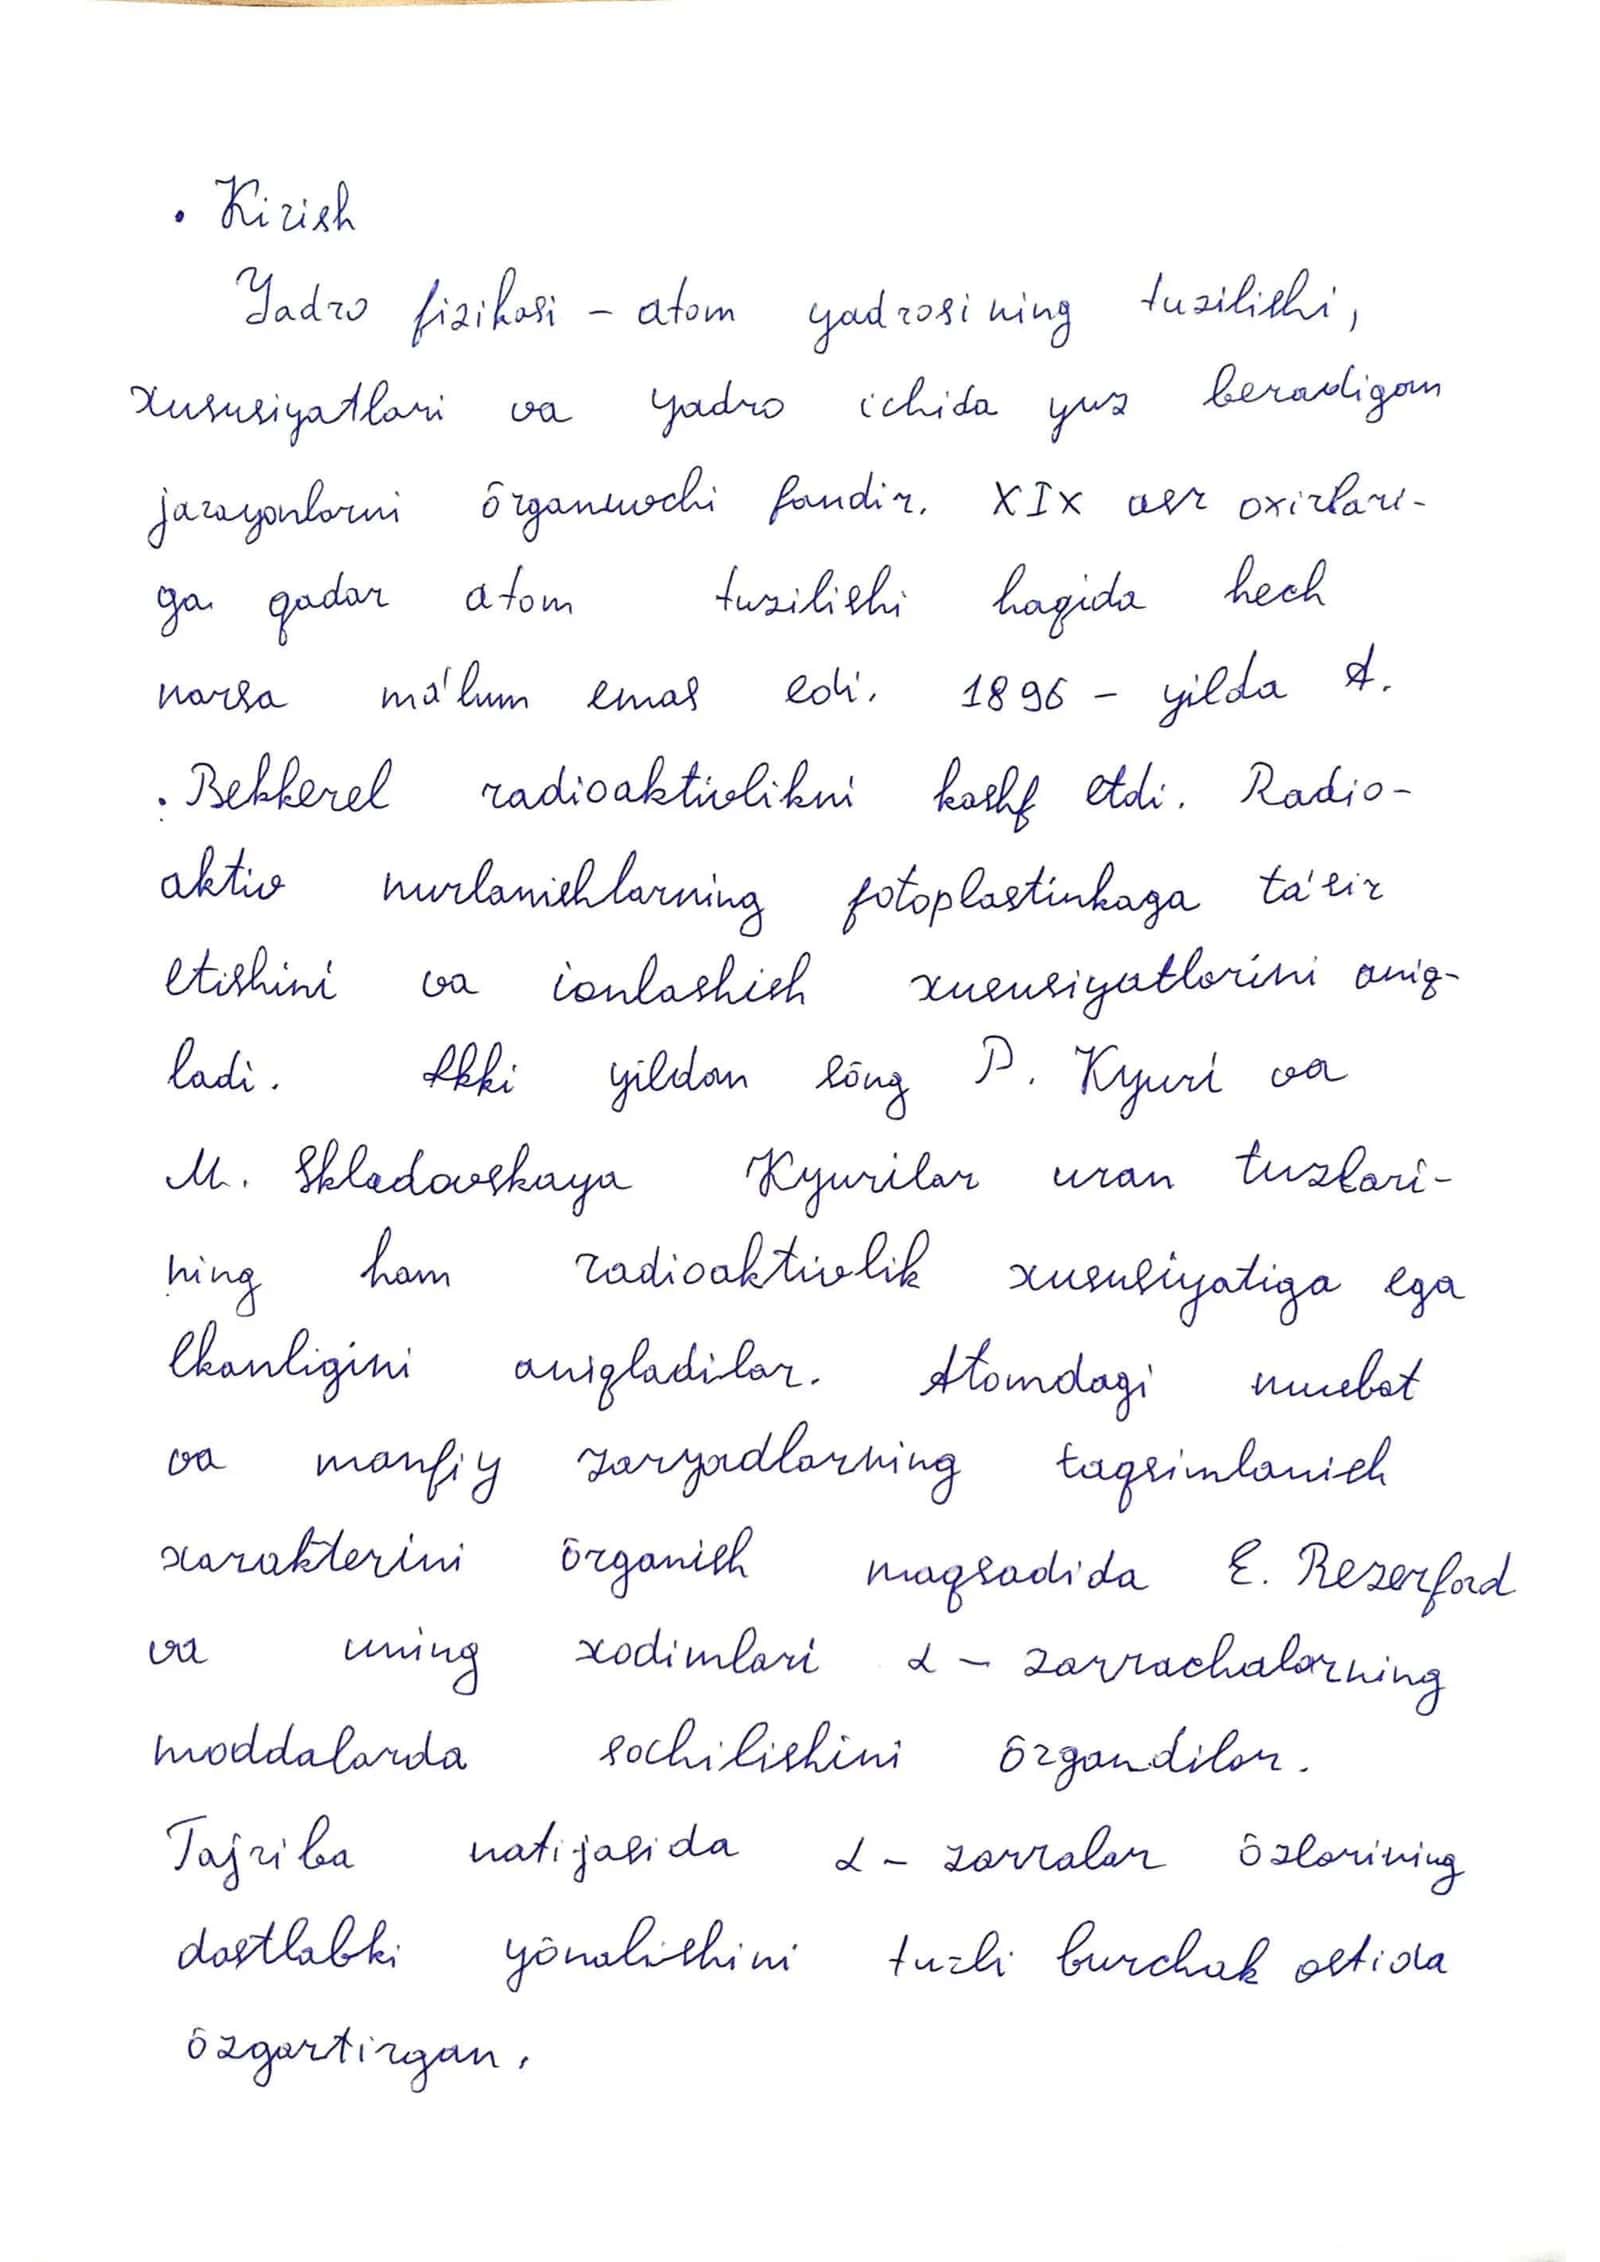 • Kirish
Yadro fizikasi - atom yadrosining tuzilishi,
xususiyatlari va yadro ichida yuz beradigan
jarayonlarni ōrganuvchi fandir. XIX asr oxirlari-
ga qadar atom tuzilishi haqida hech
narsa ma'lum emas edi. 1896 - yilda A.
. Bekkerel radioaktivlikni kashf etdi. Radio-
aktiv nurlanishlarning fotoplastinkaga ta'sir
etishini va ionlashish xususiyatlarini aniq-
ladi. Ikki yildan sōng P. Kyuri va
M. Skladovskaya Kyurilar uran tuzlari-
ning ham radioaktivlik xususiyatiga ega
ekanligini aniqladilar. Atomdagi musbat
va manfiy zaryadlarning taqsimlanish
xarakterini ōrganish maqsadida E. Rezerford
va uning xodimlari α - zarrachalarning
moddalarda sochilishini ōrgandilar.
Tajriba natijasida α - zarralar ōzlarining
dastlabki yōnalishini turli burchak ostida
ōzgartirgan.